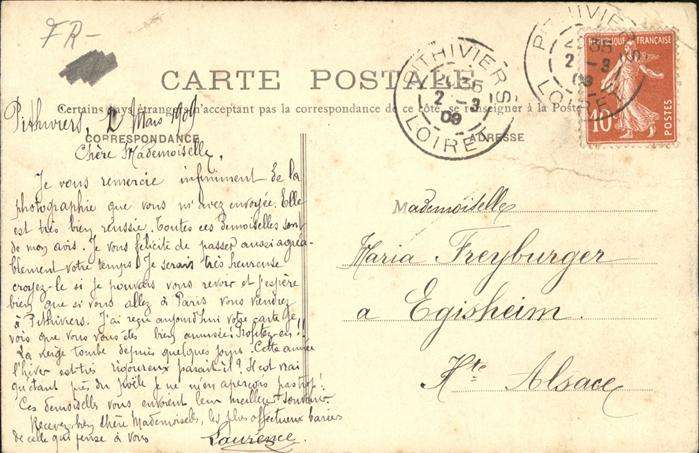 FR-
CARTE POSTALE
Certains pays étrangers n'acceptant pas la correspondance de ce côté, se renseigner à la Poste
CORRESPONDANCE
ADRESSE
PITHIVIERS
4 35
2 -3
09
LOIRET
PITHIVIERS
35
2 -3
09
LOIRET
REPUBLIQUE FRANÇAISE
10
POSTES
Pithiviers, 2 Mars 1909
Chère Mademoiselle,
Je vous remercie infiniment de la
photographie que vous m'avez envoyée. Elle
est très bien réussie. Toutes ces demoiselles sont
de mon avis. Je vous félicite de passer aussi agréa-
blement votre temps. Je serais très heureuse
croyez-le si je pouvais vous revoir et j'espère
bien que si vous allez à Paris vous viendrez
à Pithiviers. J'ai reçu aujourd'hui votre carte je
vois que vous vous êtes bien amusée. Profitez-en!!
La neige tombe depuis quelques jours. Cette année
l'hiver est très rigoureux paraît-il? Il est vrai
qu'étant près du poêle je ne m'en aperçois pas trop!
Ces demoiselles vous envoient leur meilleur souvenir
Recevez chère Mademoiselle, les plus affectueux baisers
de celle qui pense à vous
Laurence.
Mademoiselle
Maria Freyburger
a Egisheim.
Hte Alsace